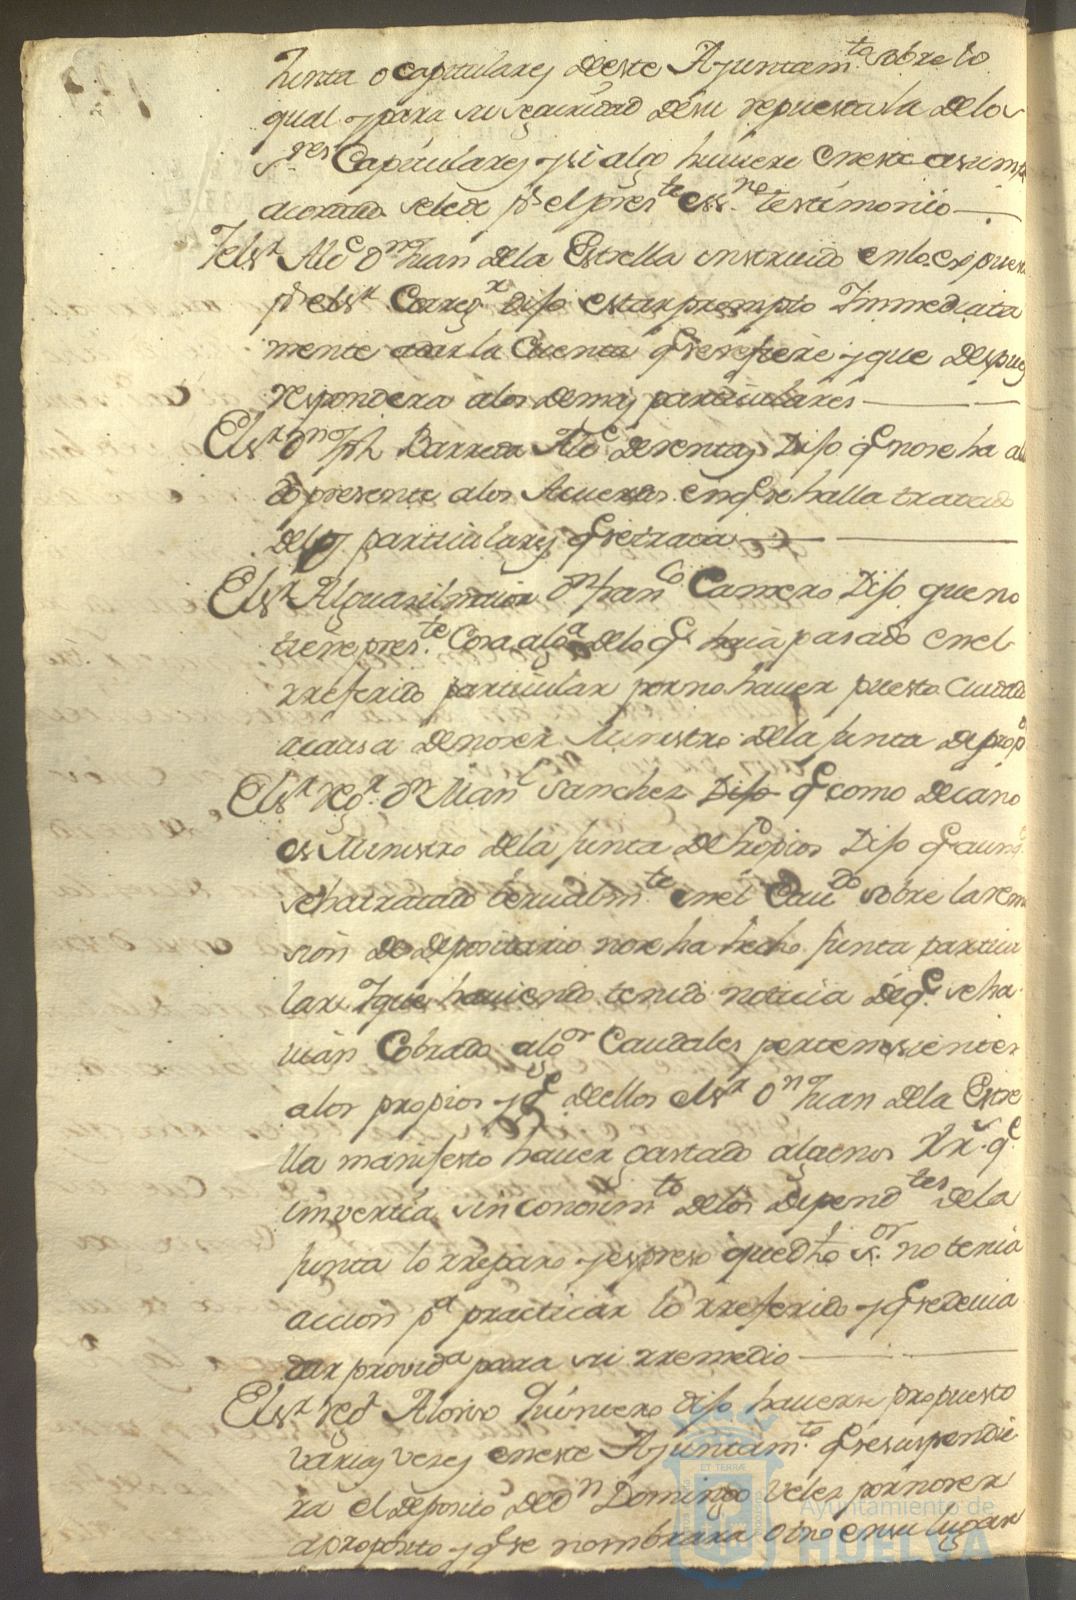 Junta o capitulares deeste Ajuntam.to sobre lo
qual y para su seguridad desu repuesta la delos
S.res Capitulares y si algo huviere eneste asumpt
acordado sele de p.r el pres.te ess.no testimonio
Y el S.r Alc.e D.n Juan dela Estrella instruido enlo expues
p.r el S.r Correg.r Dijo estar prompto Immediata
mente adar la Cuenta q.e se refiere y que despues
respondera alos demas particulares
El S.r D.n Jph Barreda Alc.e de rentas Dijo q.e nose ha alla
do presente alos Acuerdos en q.e se halla tratado
delos particulares q.e se trata
El S.r Alguasil maior D.n Fran.co Carrero Dijo que no
tiene pres.te Cosa alg.a delo q.e haia pasado en el
rreferido particular por no haver puesto Cuidado
acausa de no ser Ministro dela Junta de prop.s
El S.r reg.r D.n Man.l Sanchez Dijo q.e como decano
es Ministro dela Junta de Propios Dijo q.e aunq.
seha tratado berualm.te en el Cau.do sobre la remo
sion de depositario nose ha hecho Junta particu
lar. Y que haviendo tenido noticia de q.e se ha
vian Cobrado alg.os Caudales pertenesientes
alos propios y q.e deellos el S.r D.n Juan dela Estre
lla manifesto haver gastado algunos R.s q.e
invertia sin conosim.to delos depend.tes dela
Junta lo rreparo y espreso que dho s.or no tenia
accion p.a practicar lo rreferido y q.e se devia
dar provid.a para su rremedio
El S.r reg.r Alonso Quintero dijo haverse propuesto
varias veses eneste Ajuntam.to q.e se suspendie
ra el deposito de D.n Domingo Velez por no ser
aproposito y q.e se nombrara otro en su lugar
ET TERRÆ
Ayuntamiento de
HUELVA